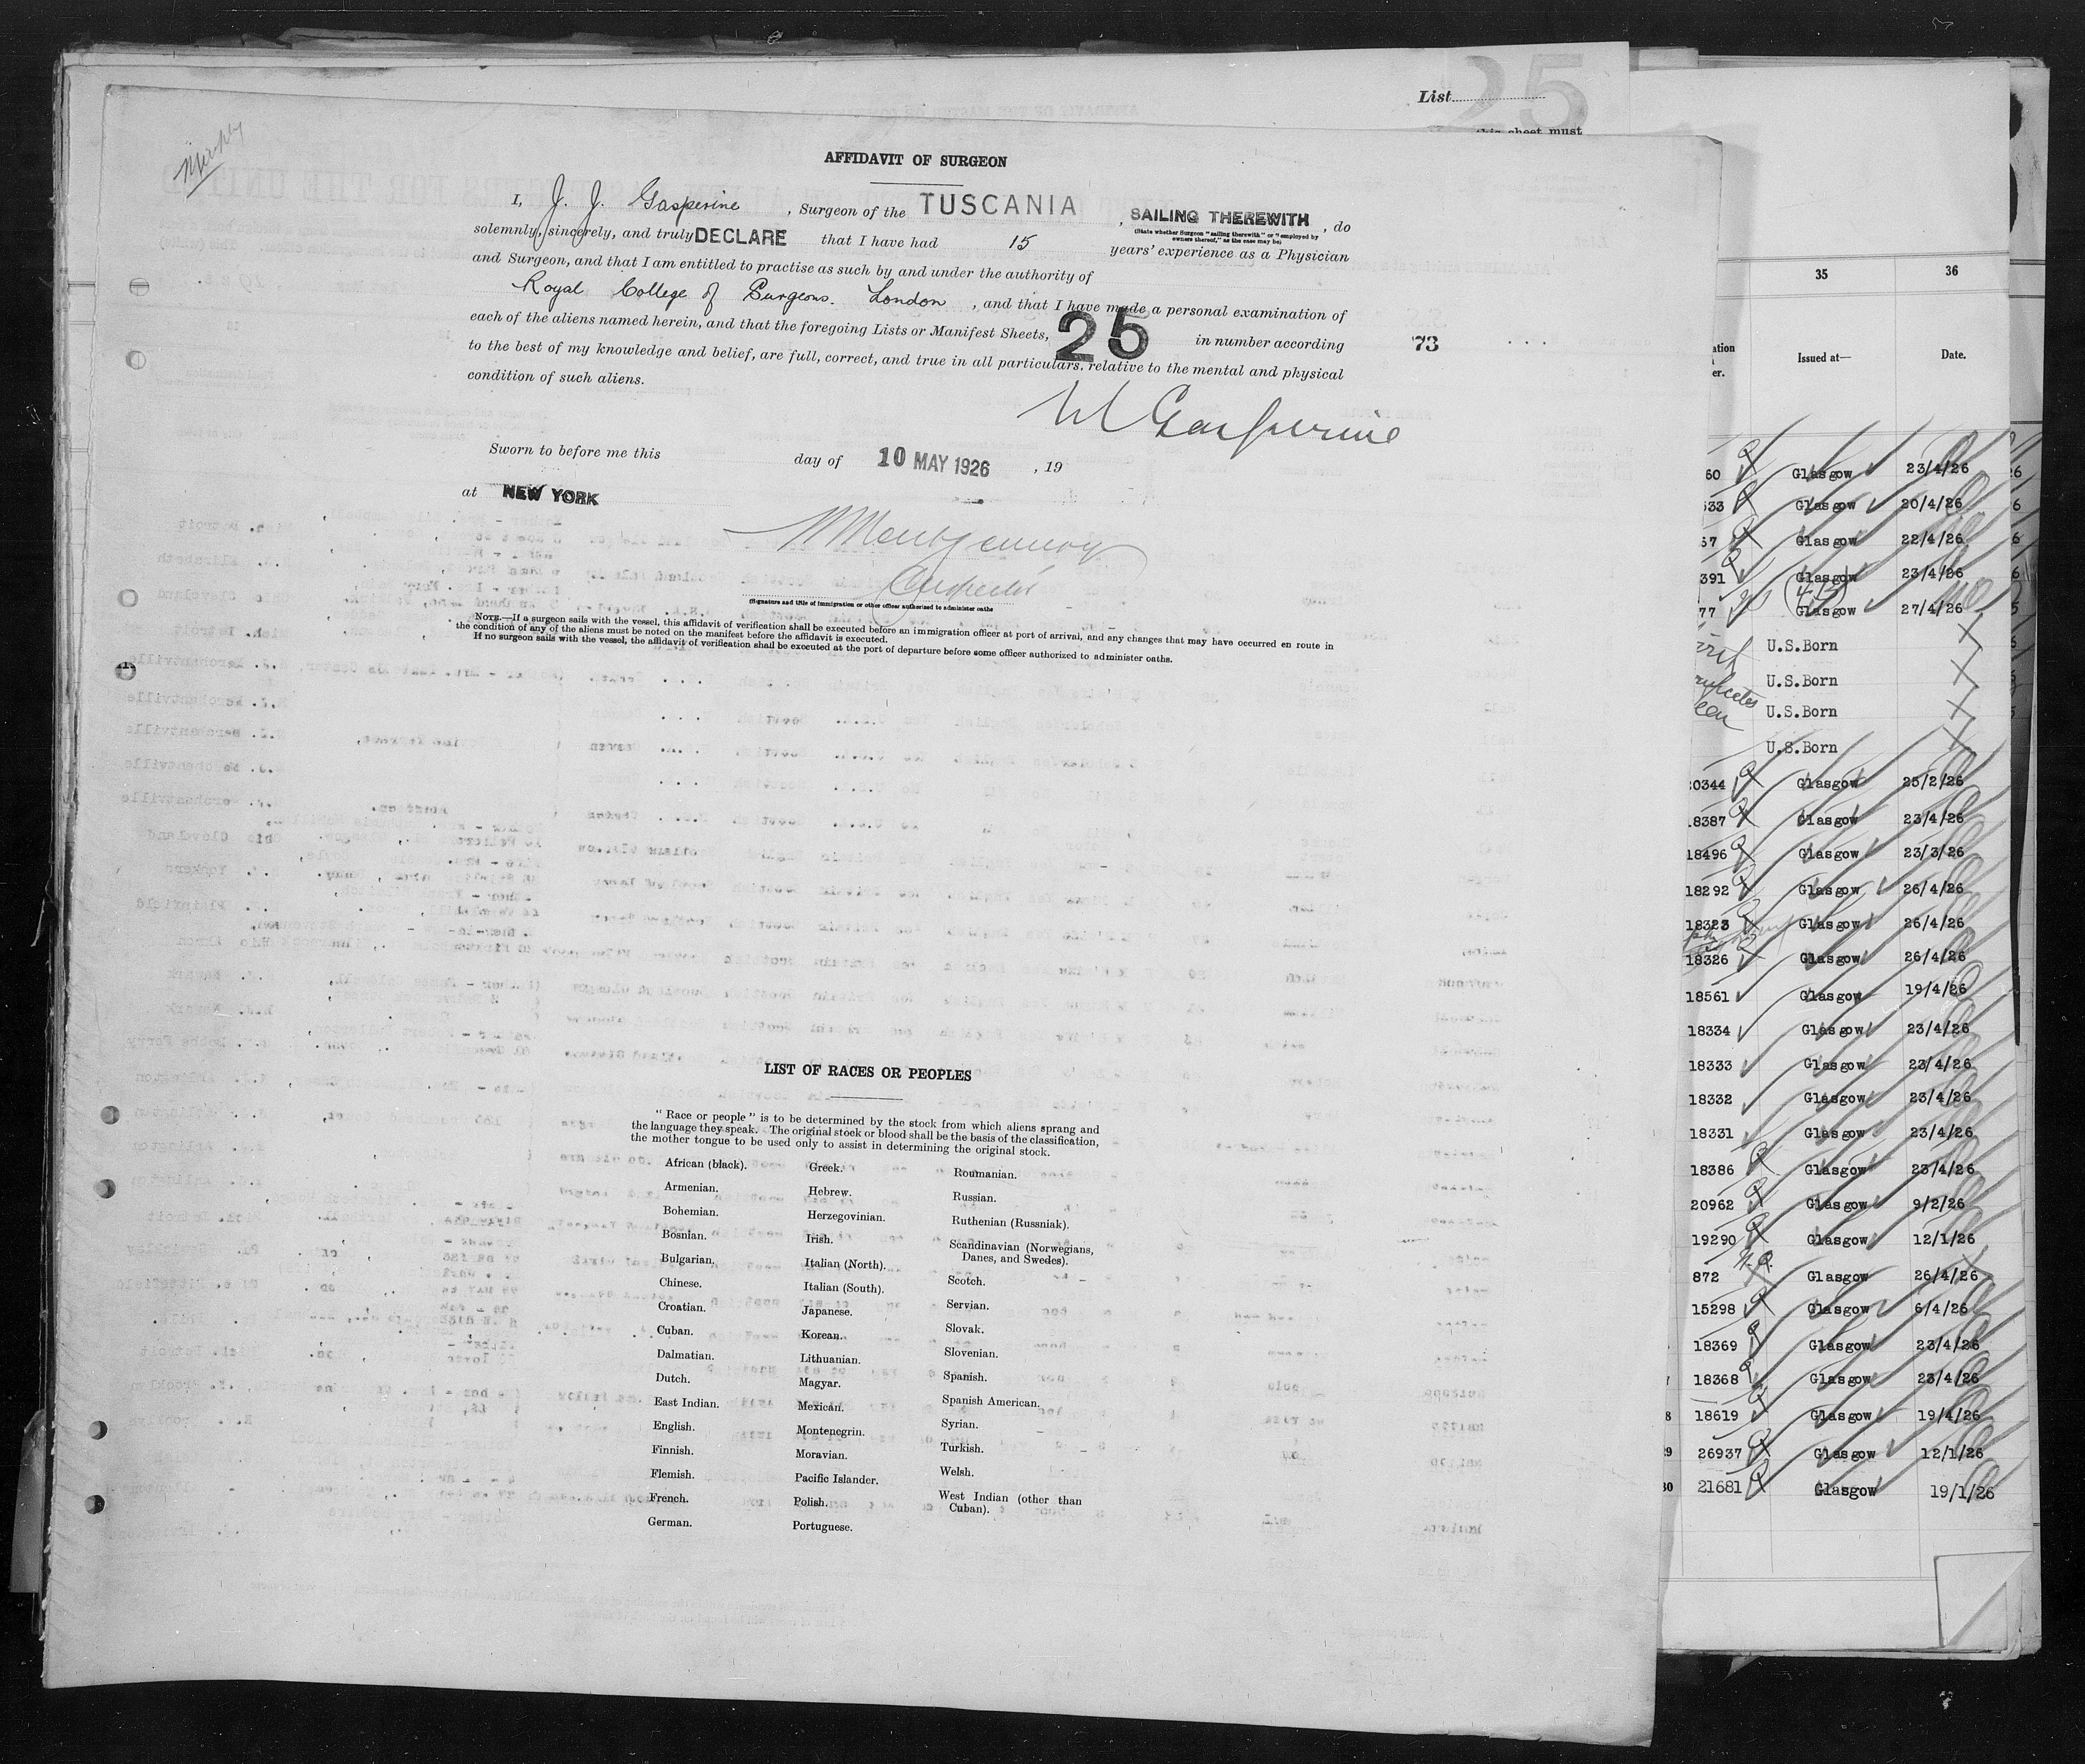 List
25
this sheet must
Murphy
AFFIDAVIT OF SURGEON
I, J. J. Gasperine, Surgeon of the TUSCANIA, SAILING THEREWITH, do
(State whether Surgeon "sailing therewith" or "employed by owners thereof," as the case may be)
solemnly, sincerely, and truly DECLARE that I have had 15 years' experience as a Physician
and Surgeon, and that I am entitled to practise as such by and under the authority of
Royal College of Surgeons. London, and that I have made a personal examination of
each of the aliens named herein, and that the foregoing Lists or Manifest Sheets, 25 in number according
to the best of my knowledge and belief, are full, correct, and true in all particulars, relative to the mental and physical
condition of such aliens.
73
Gasperine
Sworn to before me this day of 10 MAY 1926, 19
at NEW YORK
Montgomery
Inspector
(Signature and title of immigration or other officer authorized to administer oaths
NOTE.—If a surgeon sails with the vessel, this affidavit of verification shall be executed before an immigration officer at port of arrival, and any changes that may have occurred en route in
the condition of any of the aliens must be noted on the manifest before the affidavit is executed.
If no surgeon sails with the vessel, the affidavit of verification shall be executed at the port of departure before some officer authorized to administer oaths.
LIST OF RACES OR PEOPLES
"Race or people" is to be determined by the stock from which aliens sprang and
the language they speak. The original stock or blood shall be the basis of the classification,
the mother tongue to be used only to assist in determining the original stock.
African (black).
Armenian.
Bohemian.
Bosnian.
Bulgarian.
Chinese.
Croatian.
Cuban.
Dalmatian.
Dutch.
East Indian.
English.
Finnish.
Flemish.
French.
German.
Greek.
Hebrew.
Herzegovinian.
Irish.
Italian (North).
Italian (South).
Japanese.
Korean.
Lithuanian.
Magyar.
Mexican.
Montenegrin.
Moravian.
Pacific Islander.
Polish.
Portuguese.
Roumanian.
Russian.
Ruthenian (Russniak).
Scandinavian (Norwegians,
Danes, and Swedes).
Scotch.
Servian.
Slovak.
Slovenian.
Spanish.
Spanish American.
Syrian.
Turkish.
Welsh.
West Indian (other than
Cuban).
35 36
Issued at— Date.
60 Glasgow 23/4/26
533 Glasgow 20/4/26
57 Glasgow 22/4/26
391 Glasgow 23/4/26
77 Glasgow 27/4/26
U.S.Born
U.S.Born
U.S.Born
U.S.Born
20344 Glasgow 25/2/26
18387 Glasgow 23/4/26
18496 Glasgow 23/3/26
18292 Glasgow 26/4/26
18323 Glasgow 26/4/26
18326 Glasgow 26/4/26
18561 Glasgow 19/4/26
18334 Glasgow 23/4/26
18333 Glasgow 23/4/26
18332 Glasgow 23/4/26
18331 Glasgow 23/4/26
18386 Glasgow 23/4/26
20962 Glasgow 9/2/26
19290 Glasgow 12/1/26
872 Glasgow 26/4/26
15298 Glasgow 6/4/26
18369 Glasgow 23/4/26
18368 Glasgow 23/4/26
18619 Glasgow 19/4/26
26937 Glasgow 12/1/26
30 21681 Glasgow 19/1/26